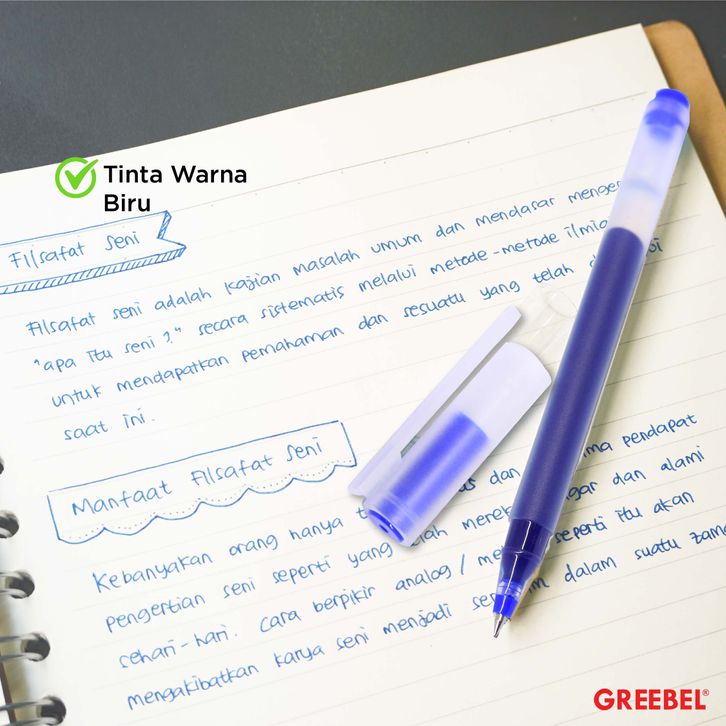 Tinta Warna
Biru
Filsafat Seni
Filsafat seni adalah kajian masalah umum dan mendasar
"apa itu seni?" secara sistematis melalui metode-metode
untuk mendapatkan pemahaman dan sesuatu yang telah
saat ini.
Manfaat Filsafat Seni
Kebanyakan orang hanya dan pendapat
pengertian seni seperti yang dan alami
sehari-hari. Cara berpikir analog/ seperti itu akan
mengakibatkan karya seni menjadi dalam suatu
GREEBEL®